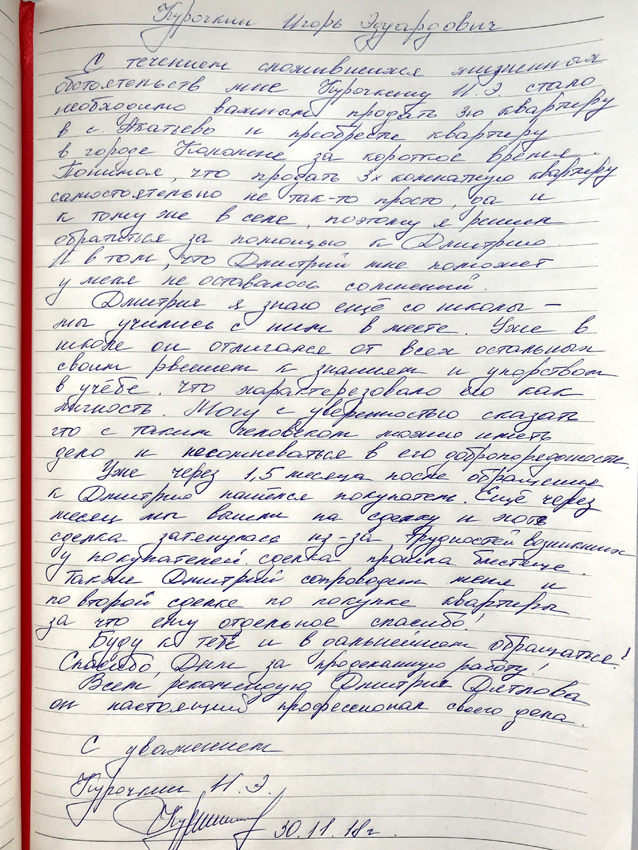 Курочкин Игорь Эдуардович
С течением сложившихся жизненных
обстоятельств мне Курочкину И.Э. стало
необходимо важным продать 3ю квартиру
в с. Акатьево и приобрести квартиру
в городе Коломне за короткое время.
Понимая, что продать 3х комнатную квартиру
самостоятельно не так-то просто, да и
к тому же в селе, поэтому я решил
обратиться за помощью к Дмитрию
И в том, что Дмитрий мне поможет
у меня не оставалось сомнений.
Дмитрия я знаю ещё со школы –
мы учились с ним вместе. Уже в
школе он отличался от всех остальных
своим рвением к знаниям и упорством
в учёбе, что характерезовало его как
личность. Могу с уверенностью сказать
что с таким человеком можно иметь
дело и несомневаться в его добропорядочности.
Уже через 1,5 месяца после обращения
к Дмитрию нашёлся покупатель. Ещё через
месяц мы вышли на сделку и хотя
сделка затянулась из-за трудностей возникших
у покупателей сделка прошла блестяще.
Также Дмитрий сопроводил меня и
по второй сделке по покупке квартиры
за что ему отдельное спасибо!
Буду к тебе и в дальнейшем обращаться!
Спасибо, Дим за проделанную работу!
Всем рекомендую Дмитрия Дятлова
он настоящий профессионал своего дела.
С уважением
Курочкин И.Э.
30.11.18г.